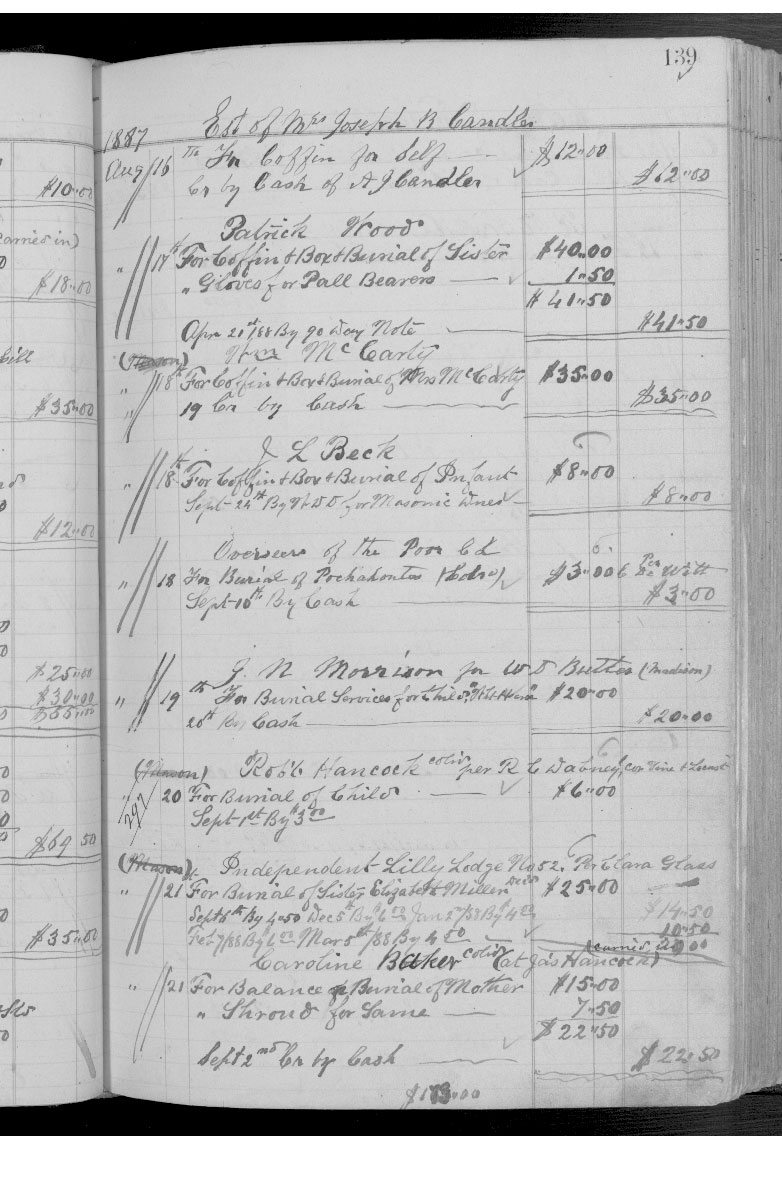 139
1887 Est of Mrs Joseph B Candler
Aug 16 To For Coffin for Self $62.00
Cr by Cash of A J Candler $62.00
Patrick Wood
" 17th For Coffin & Box & Burial of Sister $40.00
" Gloves for Pall Bearers 1.50
$41.50
Apr 21st/88 By 90 Day Note $41.50
Wm McCarty
" 18th For Coffin & Box & Burial of Mrs McCarty $35.00
" 19 Cr by Cash $35.00
J L Beck
" 18th For Coffin & Box & Burial of Infant $8.00
Sept 24th By for Masonic Dues $8.00
Overseers of the Poor
" 18 For Burial of Pochahontas (Cold) $3.00 Witt
Sept 10th By Cash $3.00
G. N Morrison for W D Butts (Madison)
" 19th For Burial Services for Child $20.00
20th By Cash $20.00
Robt Hancock cold per R C Dabney, cor Vine & Locust
" 20 For Burial of Child $6.00
297
Sept 1st By $3.00
Independent Lilly Lodge No 52. Per Clara Glass
" 21 For Burial of Sister Elizabeth Miller Decd $25.00
Sept 5th By 4.50 Dec 5th By 6.00 Jan 5/88 By 4.00 $14.50
Feb 7/88 By 6.00 Mar 5th/88 By 4.50 10.50
Caroline Baker cold (at Jas Hancock)
" 21 For Balance Burial of Mother $15.00
" Shroud for Same 7.50
$22.50
Sept 2nd Cr by Cash $22.50
$173.00
$10.00
carried in)
$18.00
$35.00
$12.00
$25.00
$30.00
$55.00
$69 50
$35.00